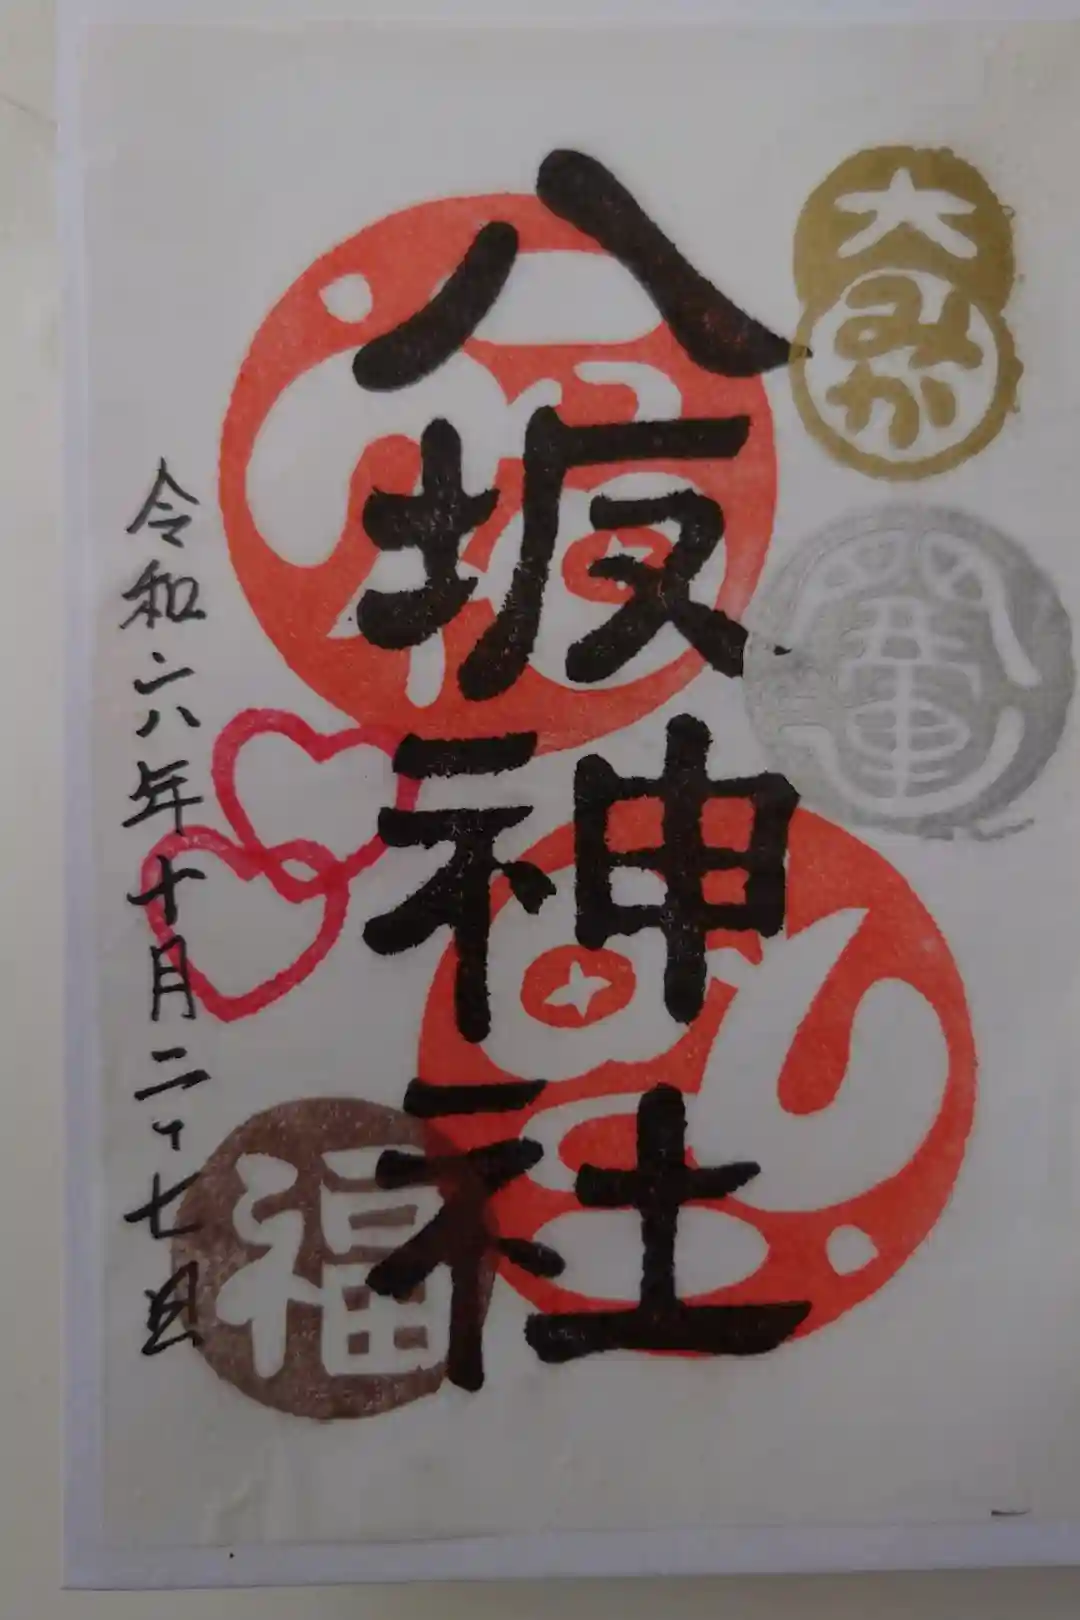 大みか
八坂神社
令和六年十月二十七日
福